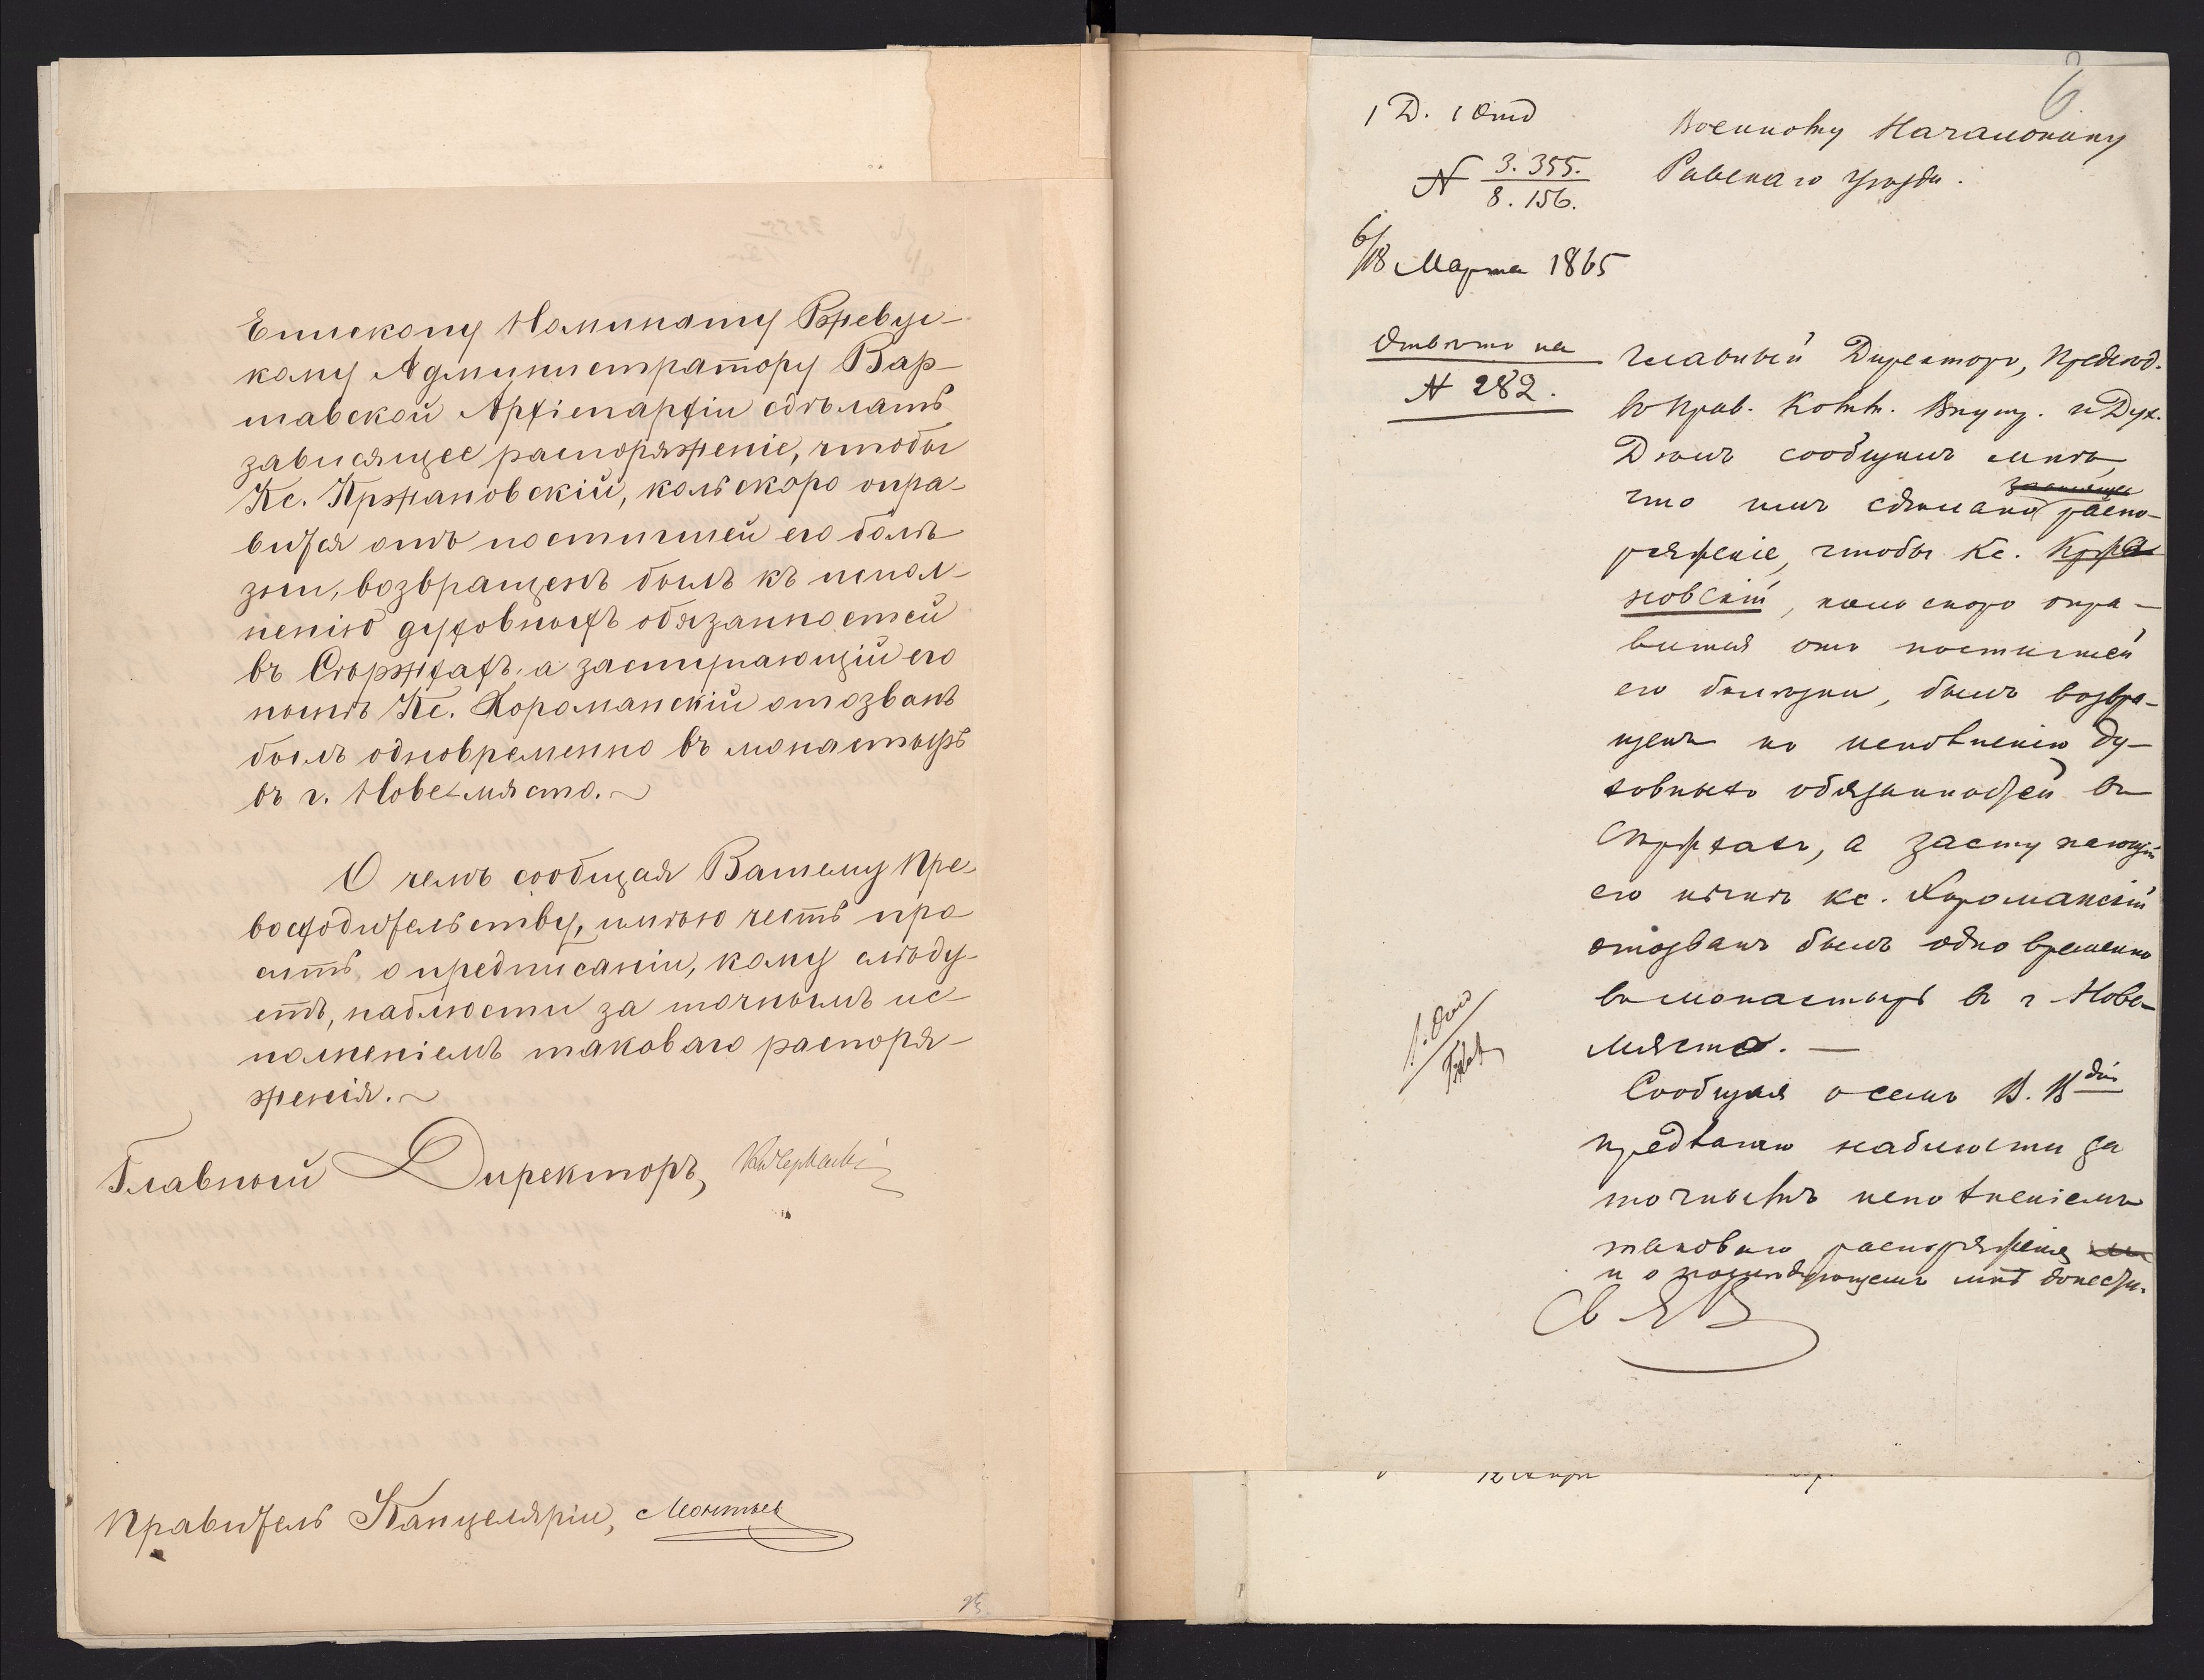 Епископу Номинату Бржевус-
кому Администратору Вар-
шавской Архіепархіи сдѣлать
зависящее распоряженіе, чтобы
Кс. Кржановскій, коль скоро опра-
вится отъ постигшей его болѣ
зни, возвращенъ былъ къ испол-
ненію духовныхъ обязанностей
въ Стржхахъ, а заступающій его
нынѣ Кс. Хороманскій отозванъ
былъ одновременно въ монастырь
въ г. Новемясто.
О чемъ сообщая Вашему Пре-
восходительству, имѣю честь про
сить о предписаніи, кому слѣду-
етъ, наблюсти за точнымъ ис-
полненіемъ таковаго распоря-
женія.
Главный Директоръ,
Правитель Канцеляріи, Леонтьев
6
1 Д. 1 Отд
N 3.355.
8.156.
6/18 Марта 1865
Военному Начальнику
Равскаго уѣзда.
Отвѣтъ на
N 282.
Главный Директоръ, Предсѣд.
въ Прав. Комм. Внутр. и Дух.
Дѣлъ сообщилъ мнѣ,
что имъ сдѣлано распо-
ряженіе, чтобы Кс. Кржа
новскій, коль скоро опра-
вится отъ постигшей
его болѣзни, былъ возвра-
щенъ къ исполненію ду-
ховныхъ обязанностей въ
Стржхахъ, а заступающій
его нынѣ Кс. Хороманскій
отозванъ былъ одновременно
въ монастырь въ г Нове-
място.
Сообщая о семъ В. В
предлагаю наблюсти за
точнымъ исполненіемъ
таковаго распоряженія
и о послѣдующемъ мнѣ донести.